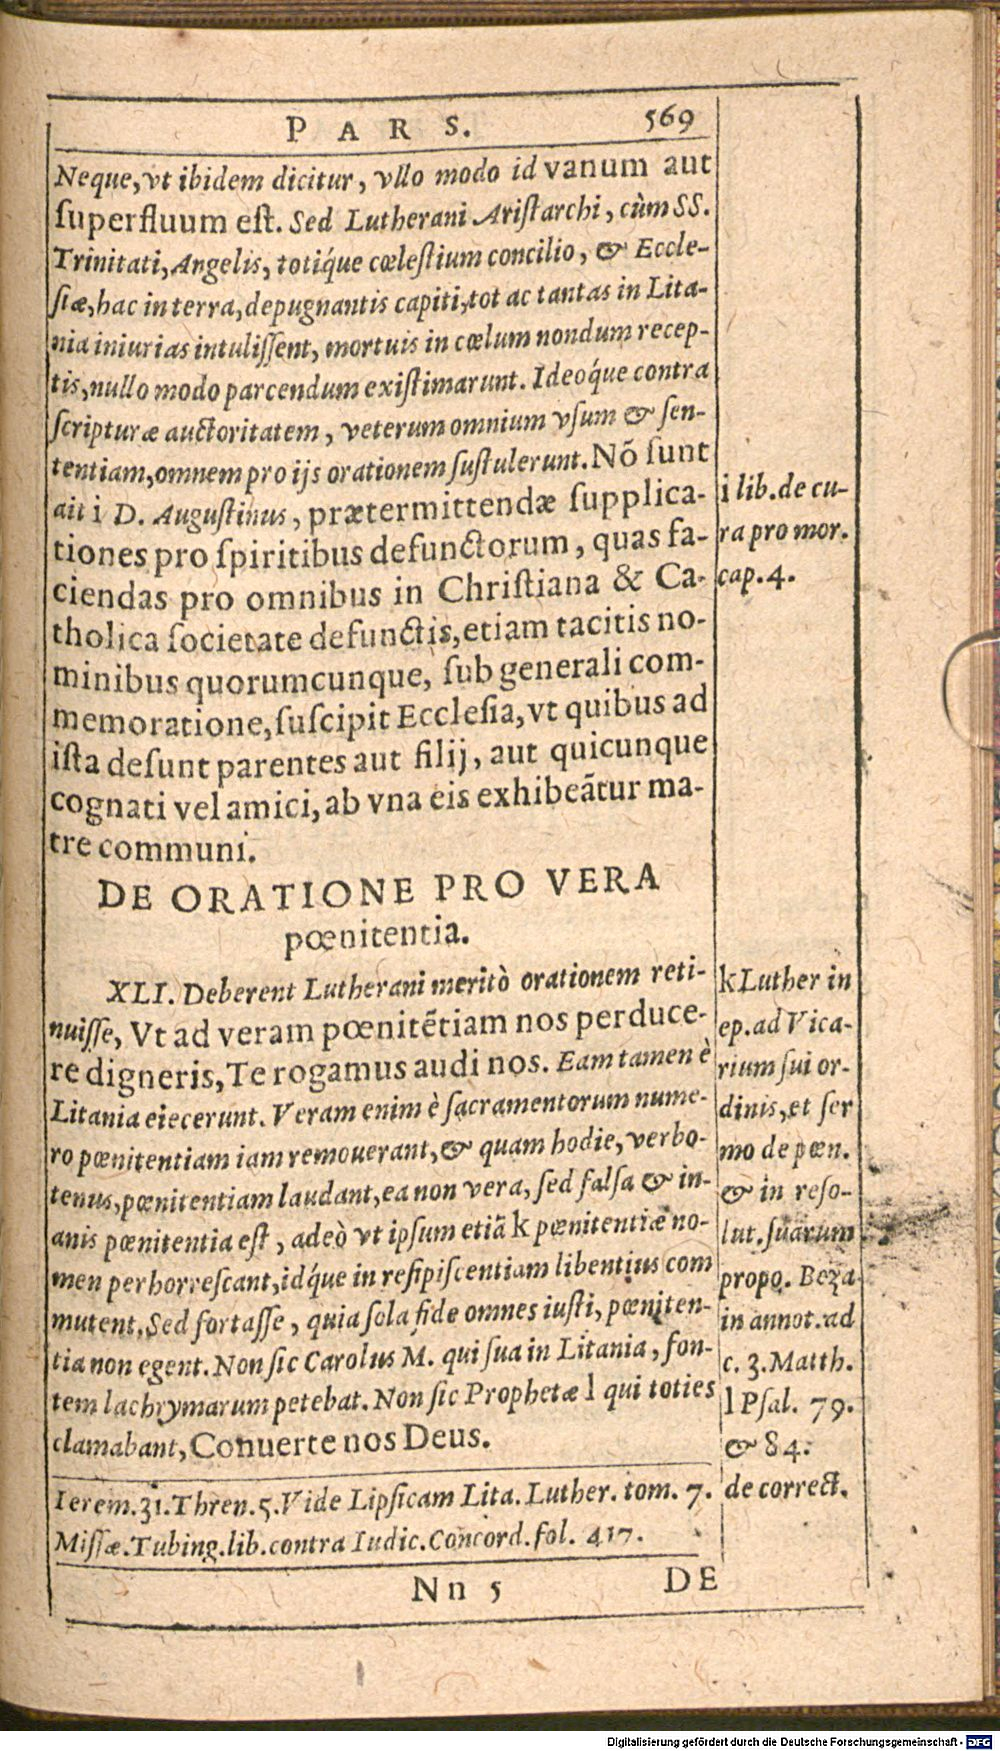 PARS. 569
Neque, vt ibidem dicitur, vllo modo id vanum aut
ſuperfluum eſt. Sed Lutherani Ariſtarchi, cùm SS.
Trinitati, Angelis, totiq́ue cœleſtium concilio, & Eccle-
ſiæ, hac in terra, depugnantis capiti, tot ac tantas in Lita-
nia iniurias intuliſſent, mortuis in cœlum nondum recep-
tis, nullo modo parcendum exiſtimarunt. Ideoq́ue contra
ſcripturæ auctoritatem, veterum omnium vſum & ſen-
tentiam, omnem pro ijs orationem ſuſtulerunt. Nõ ſunt
ait i D. Auguſtinus, prætermittendæ ſupplica-
tiones pro ſpiritibus defunctorum, quas fa-
ciendas pro omnibus in Chriſtiana & Ca-
tholica ſocietate defunctis, etiam tacitis no-
minibus quorumcunque, ſub generali com-
memoratione, ſuſcipit Eccleſia, vt quibus ad
iſta deſunt parentes aut filij, aut quicunque
cognati vel amici, ab vna eis exhibeãtur ma-
tre communi.
i lib. de cu-
ra pro mor.
cap. 4.
DE ORATIONE PRO VERA
pœnitentia.
XLI. Deberent Lutherani meritò orationem reti-
nuiſſe, Vt ad veram pœnitẽtiam nos perduce-
re digneris, Te rogamus audi nos. Eam tamen è
Litania eiecerunt. Veram enim è ſacramentorum nume-
ro pœnitentiam iam remouerant, & quam hodie, verbo-
tenus, pœnitentiam laudant, ea non vera, ſed falſa & in-
anis pœnitentia eſt, adeò vt ipſum etiã k pœnitentiæ no-
men perhorreſcant, idq́ue in reſipiſcentiam libentius com
mutent. Sed fortaſſe, quia ſola fide omnes iuſti, pœniten-
tia non egent. Non ſic Carolus M. qui ſua in Litania, fon-
tem lachrymarum petebat. Non ſic Prophetæ l qui toties
clamabant, Conuerte nos Deus.
k Luther in
ep. ad Vica-
rium ſui or-
dinis, et ſer
mo de pœn.
& in reſo-
lut. ſuarum
propo. Beza
in annot. ad
c. 3. Matth.
l Pſal. 79.
& 84.
de correct.
Ierem. 31. Thren. 5. Vide Lipſicam Lita. Luther. tom. 7.
Miſſæ. Tubing. lib. contra Iudic. Concord. fol. 417.
Nn 5 DE
Digitalisierung gefördert durch die Deutsche Forschungsgemeinschaft - DFG